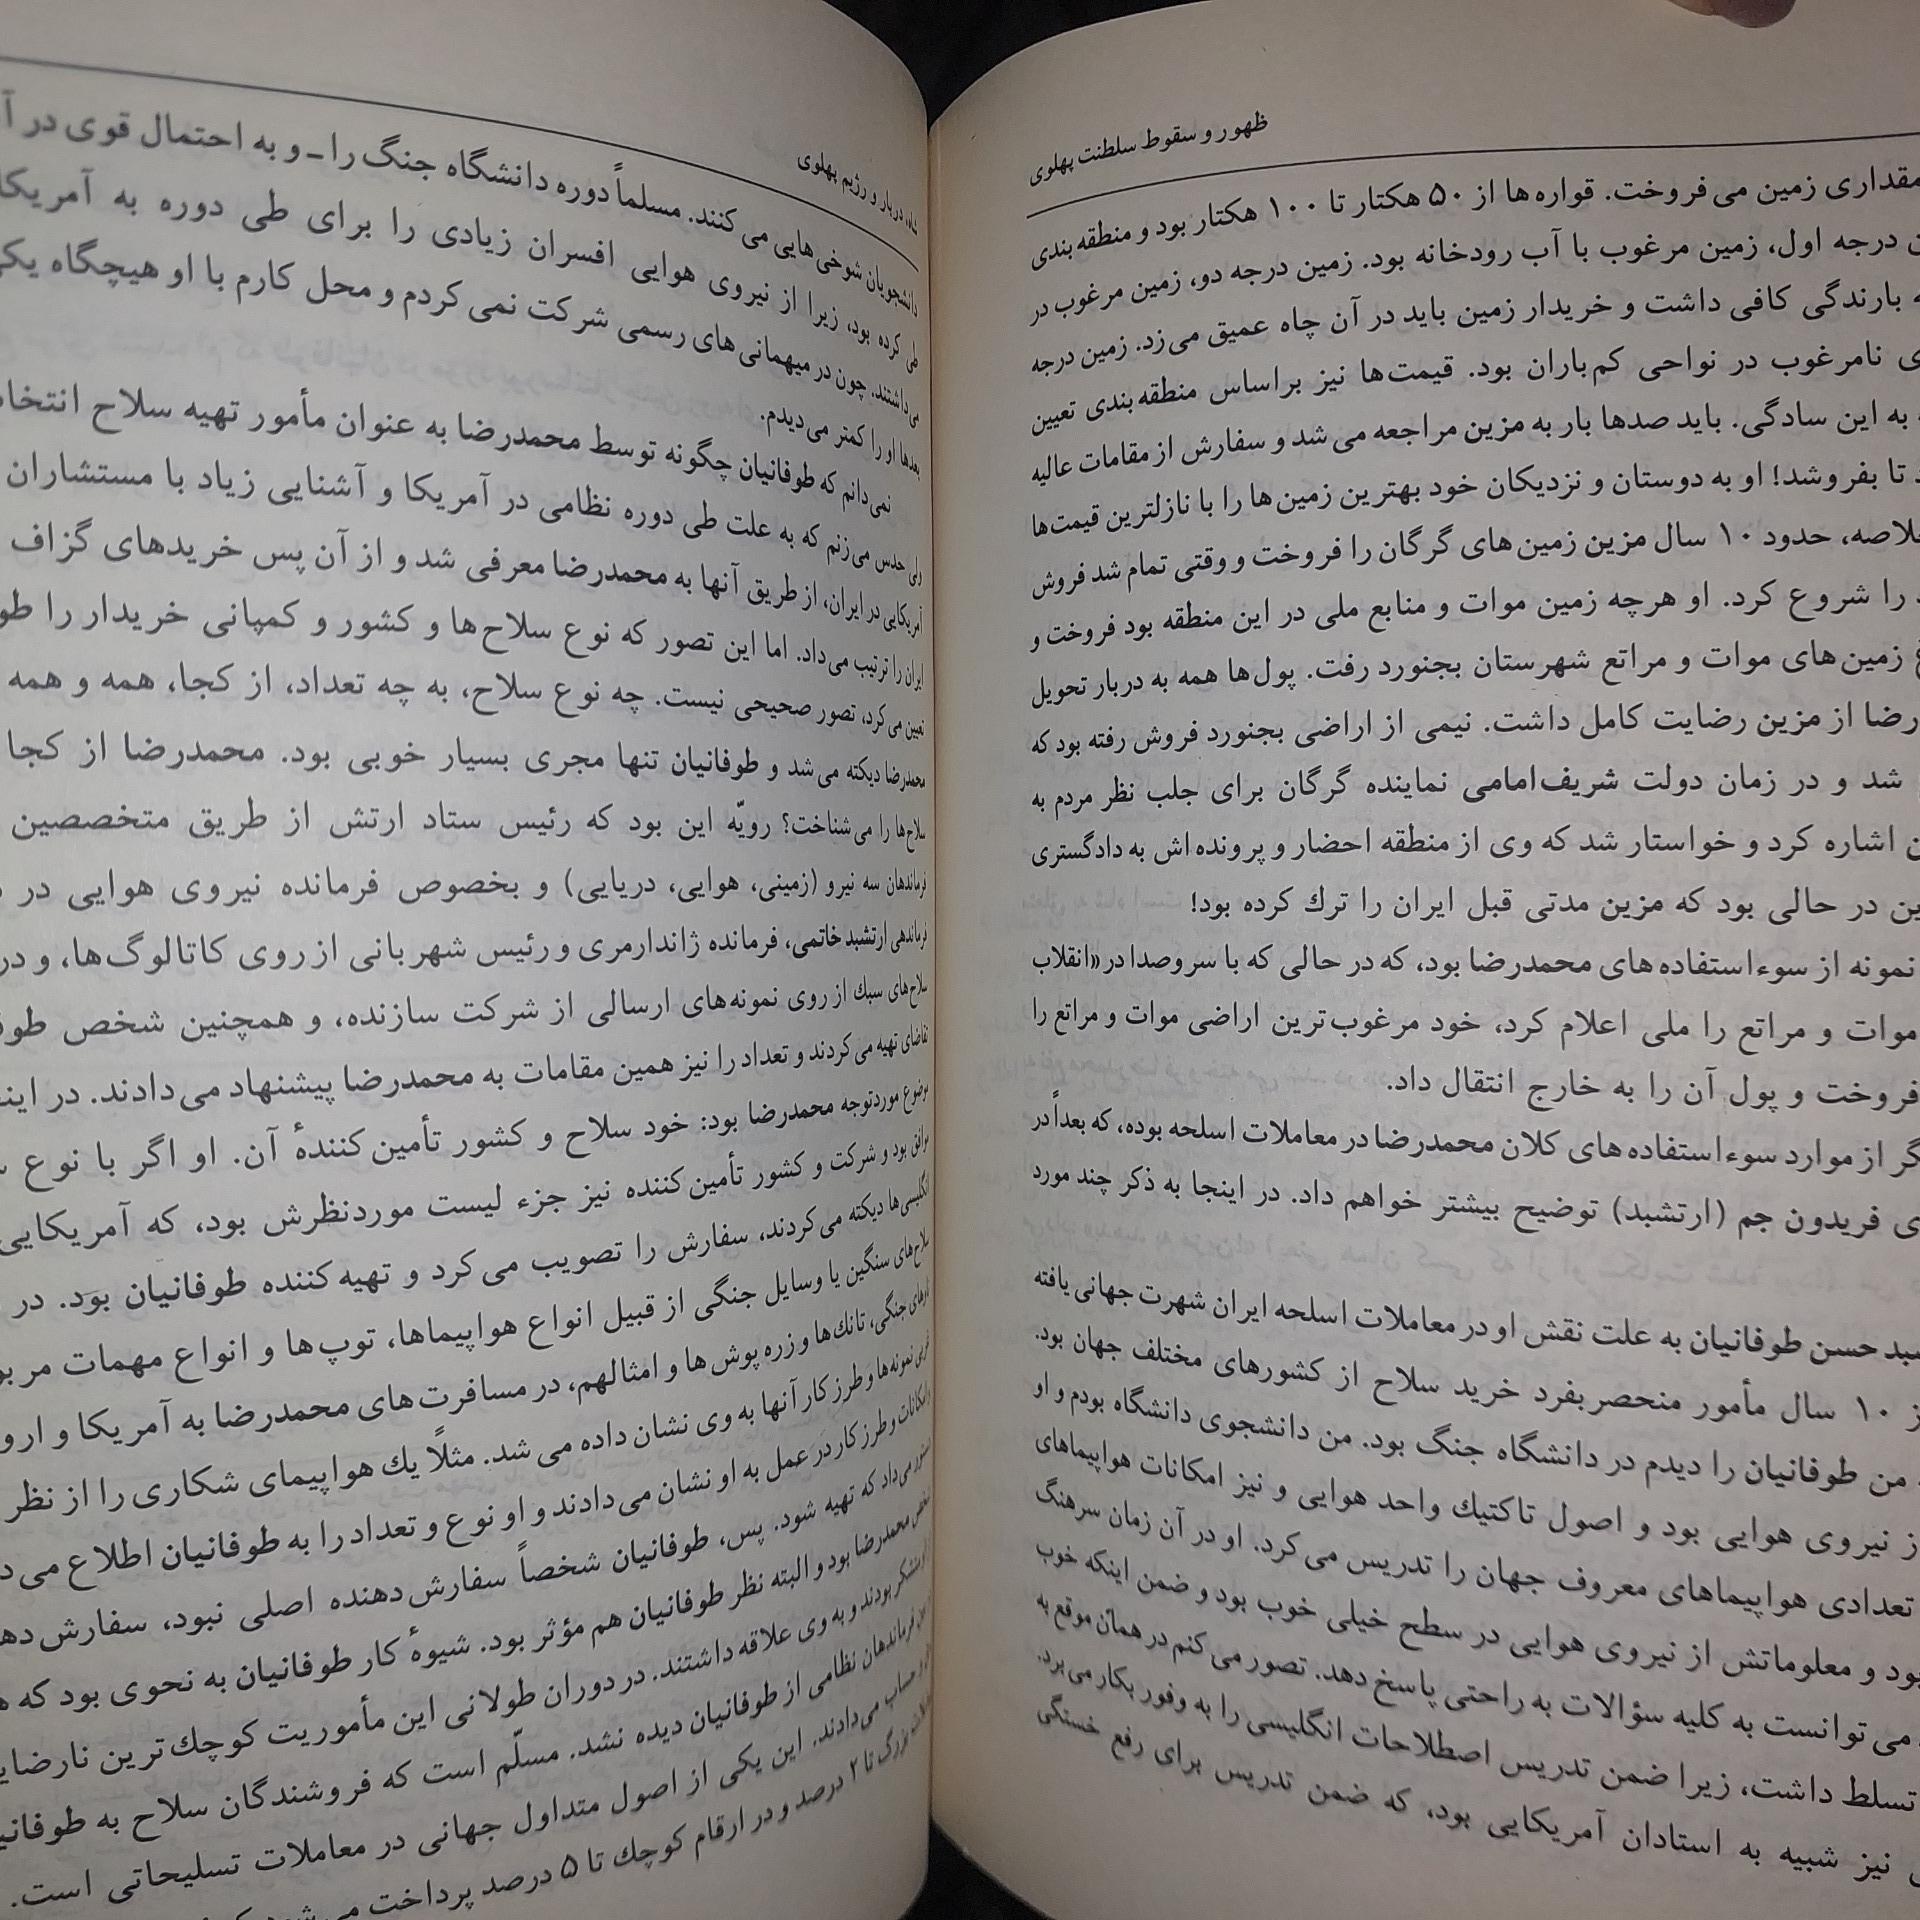 ظهور و سقوط سلطنت پهلوی
مقداری زمین می فروخت. قواره ها از ۵۰ هکتار تا ۱۰۰ هکتار بود و منطقه بندی
درجه اول، زمین مرغوب با آب رودخانه بود. زمین درجه دو، زمین مرغوب در
بارندگی کافی داشت و خریدار زمین باید در آن چاه عمیق می زد. زمین درجه
نامرغوب در نواحی کم باران بود. قیمت ها نیز براساس منطقه بندی تعیین
به این سادگی. باید صدها بار به مزین مراجعه می شد و سفارش از مقامات عالیه
تا بفروشد! او به دوستان و نزدیکان خود بهترین زمین ها را با نازلترین قیمت ها
حدود ۱۰ سال مزین زمین های گرگان را فروخت و وقتی تمام شد فروش
را شروع کرد. او هرچه زمین موات و منابع ملی در این منطقه بود فروخت و
زمین های موات و مراتع شهرستان بجنورد رفت. پول ها همه به دربار تحویل
از مزین رضایت کامل داشت. نیمی از اراضی بجنورد فروش رفته بود که
شد و در زمان دولت شریف امامی نماینده گرگان برای جلب نظر مردم به
اشاره کرد و خواستار شد که وی از منطقه احضار و پرونده اش به دادگستری
در حالی بود که مزین مدتی قبل ایران را ترك کرده بود!
نمونه از سوءاستفاده های محمدرضا بود، که در حالی که با سروصدا در «انقلاب
موات و مراتع را ملی اعلام کرد، خود مرغوب ترین اراضی موات و مراتع را
فروخت و پول آن را به خارج انتقال داد.
از موارد سوءاستفاده های کلان محمدرضا در معاملات اسلحه بوده، که بعداً در
فریدون جم (ارتشبد) توضیح بیشتر خواهم داد. در اینجا به ذکر چند مورد
حسن طوفانیان به علت نقش او در معاملات اسلحه ایران شهرت جهانی یافته
۱۰ سال مأمور منحصربفرد خرید سلاح از کشورهای مختلف جهان بود.
من طوفانیان را دیدم در دانشگاه جنگ بود. من دانشجوی دانشگاه بودم و او
نیروی هوایی بود و اصول تاکتیك واحد هوایی و نیز امکانات هواپیماهای
تعدادی هواپیماهای معروف جهان را تدریس می کرد. او در آن زمان سرهنگ
و معلوماتش از نیروی هوایی در سطح خیلی خوب بود و ضمن اینکه خوب
می توانست به کلیه سؤالات به راحتی پاسخ دهد. تصور می کنم در همان موقع به
تسلط داشت، زیرا ضمن تدریس اصطلاحات انگلیسی را به وفور بکار می برد.
نیز شبیه به استادان آمریکایی بود، که ضمن تدریس برای رفع خستگی
شاه، دربار و رژیم پهلوی
دانشجویان شوخی هایی می کنند. مسلماً دوره دانشگاه جنگ را ـ و به احتمال قوی در
طی کرده بود، زیرا از نیروی هوایی افسران زیادی را برای طی دوره به آمریکا
می داشتند. چون در میهمانی های رسمی شرکت نمی کردم و محل کارم با او هیچگاه
بعدها او را کمتر می دیدم.
نمی دانم که طوفانیان چگونه توسط محمدرضا به عنوان مأمور تهیه سلاح
ولی حدس می زنم که به علت طی دوره نظامی در آمریکا و آشنایی زیاد با مستشاران
آمریکایی در ایران، از طریق آنها به محمدرضا معرفی شد و از آن پس خریدهای گزاف
ایران را ترتیب می داد. اما این تصور که نوع سلاح ها و کشور و کمپانی خریدار را
تعیین می کرد، تصور صحیحی نیست. چه نوع سلاح، به چه تعداد، از کجا، همه و همه
محمدرضا دیکته می شد و طوفانیان تنها مجری بسیار خوبی بود. محمدرضا از کجا
سلاح ها را می شناخت؟ رویّه این بود که رئیس ستاد ارتش از طریق متخصصین
فرماندهان سه نیرو (زمینی، هوایی، دریایی) و بخصوص فرمانده نیروی هوایی در
فرماندهی ارتشبد خاتمی، فرمانده ژاندارمری و رئیس شهربانی از روی کاتالوگ ها، و در
سلاح های سبك از روی نمونه های ارسالی از شرکت سازنده، و همچنین شخص
تقاضای تهیه می کردند و تعداد را نیز همین مقامات به محمدرضا پیشنهاد می دادند. در
موضوع موردتوجه محمدرضا بود: خود سلاح و کشور تأمین کنندهٔ آن. او اگر با نوع
موافق بود و شرکت و کشور تأمین کننده نیز جزء لیست موردنظرش بود، که آمریکایی
انگلیسی ها دیکته می کردند، سفارش را تصویب می کرد و تهیه کننده طوفانیان بود. در
سلاح های سنگین یا وسایل جنگی از قبیل انواع هواپیماها، توپ ها و انواع مهمات
جنگی، تانك ها و زره پوش ها و امثالهم، در مسافرت های محمدرضا به آمریکا و
نمونه ها و طرز کار آنها به وی نشان داده می شد. مثلاً یك هواپیمای شکاری را از نظر
امکانات و طرز کار در عمل به او نشان می دادند و او نوع و تعداد را به طوفانیان اطلاع
دستور می داد که تهیه شود. پس، طوفانیان شخصاً سفارش دهنده اصلی نبود،
شخص محمدرضا بود و البته نظر طوفانیان هم مؤثر بود. شیوهٔ کار طوفانیان به نحوی بود که
بودند و به وی علاقه داشتند. در دوران طولانی این مأموریت کوچك ترین
فرماندهان نظامی از طوفانیان دیده نشد. مسلّم است که فروشندگان سلاح به
حساب می دادند. این یکی از اصول متداول جهانی در معاملات تسلیحاتی است.
بزرگ تا ۲ درصد و در ارقام کوچك تا ۵ درصد پرداخت